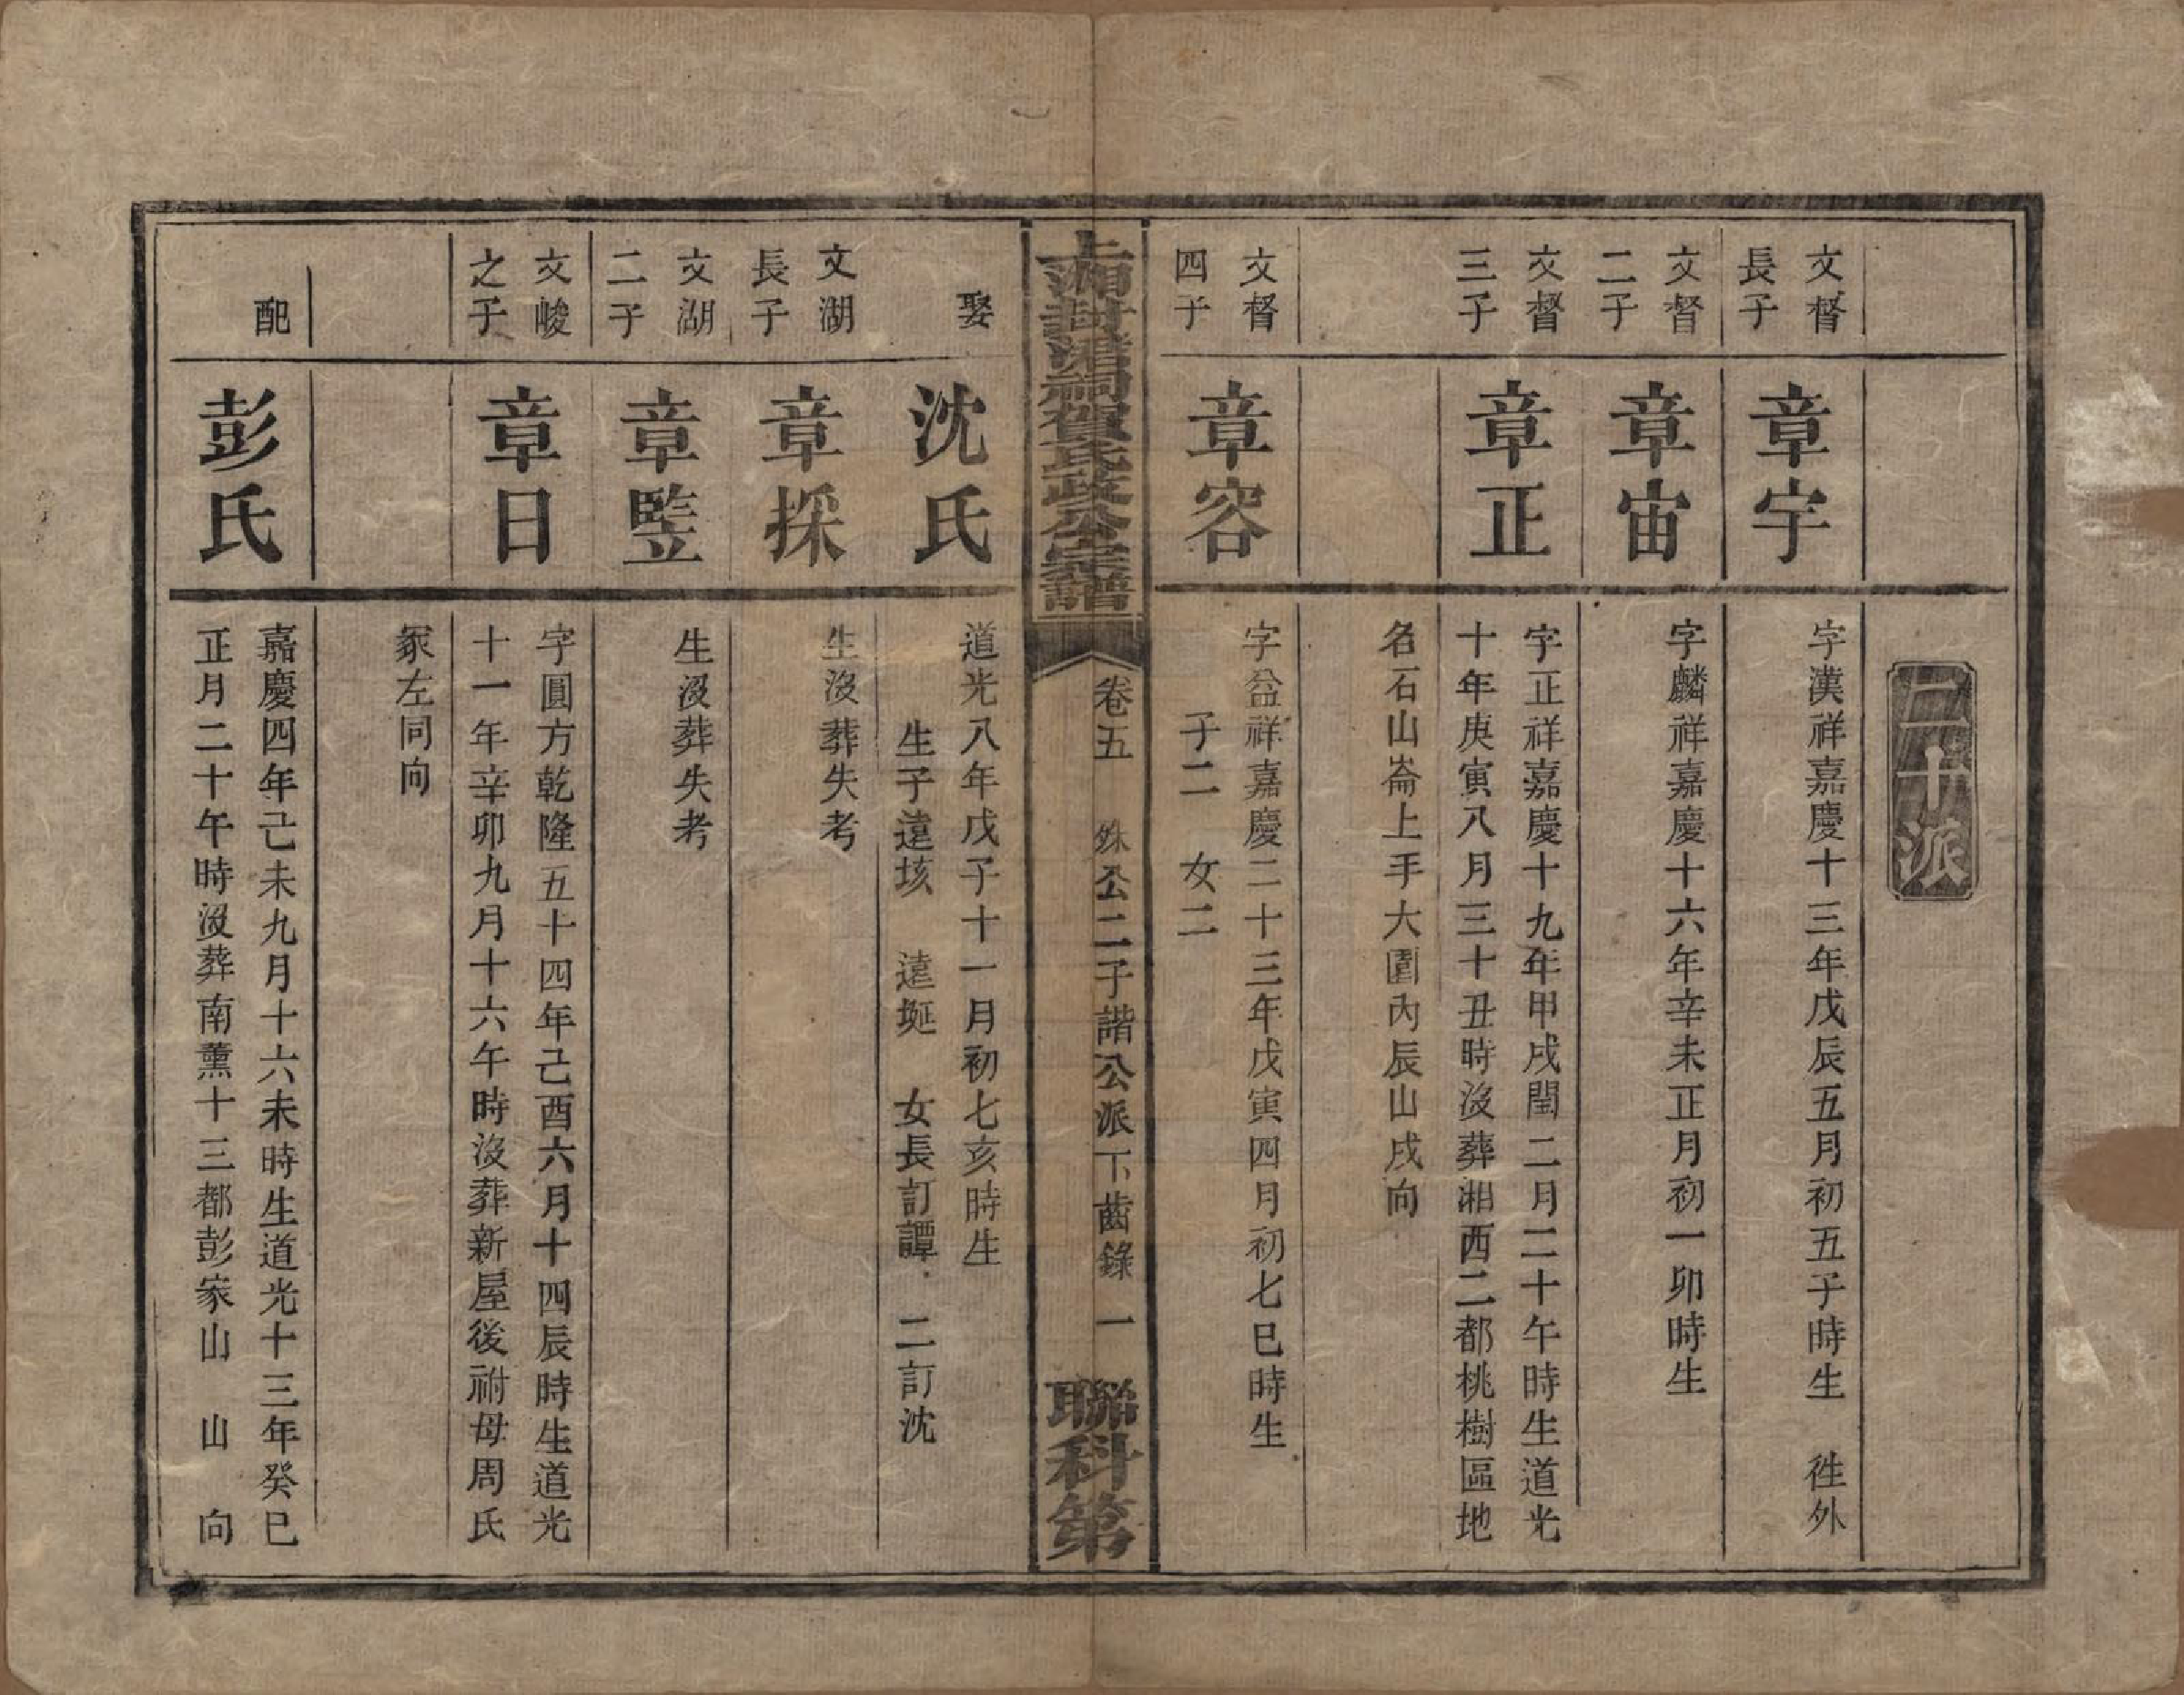 二十派
文督
長子
章宇
字漢祥嘉慶十三年戊辰五月初五子時生 徃外
文督
二子
章宙
字麟祥嘉慶十六年辛未正月初一卯時生
文督
三子
章正
字正祥嘉慶十九年甲戌閏二月二十午時生道光
十年庚寅八月三十丑時沒葬湘西二都桃樹區地
名石山崙上手大圍內辰山戌向
文督
四子
章容
字益祥嘉慶二十三年戊寅四月初七巳時生
子二 女二
上湘封渚祠賀氏政公宗譜
卷五 銖公二子諧公派下齒錄 一
聯科第
娶
沈氏
道光八年戊子十一月初七亥時生
生子遠垓 遠埏 女長訂譚 二訂沈
文湖
長子
章採
生沒葬失考
文湖
二子
章竪
生沒葬失考
文峻
之子
章日
字圓方乾隆五十四年己酉六月十四辰時生道光
十一年辛卯九月十六午時沒葬新屋後祔母周氏
冢左同向
配
彭氏
嘉慶四年己未九月十六未時生道光十三年癸巳
正月二十午時沒葬南薰十三都彭家山 山 向